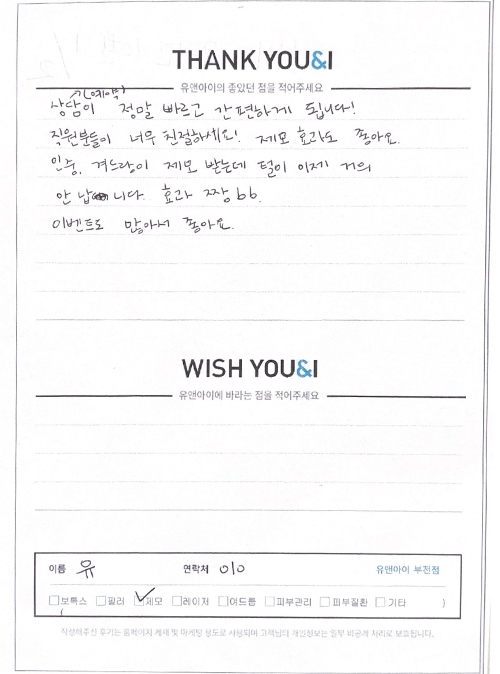 THANK YOU&I
유앤아이의 좋았던 점을 적어주세요
(예약)
상담이 정말 빠르고 간편하게 됩니다!
직원분들이 너무 친절하세요! 제모 효과도 좋아요.
인중, 겨드랑이 제모 받는데 털이 이제 거의
안 납니다. 효과 짱 bb.
이벤트도 많아서 좋아요.
WISH YOU&I
유앤아이에 바라는 점을 적어주세요
이름 유 연락처 010 유앤아이 부전점
보톡스 필러 제모 레이저 여드름 피부관리 피부질환 기타 )
작성해주신 후기는 홈페이지 게재 및 마케팅 용도로 사용되며 고객님의 개인정보는 일부 비공개 처리로 보호됩니다.